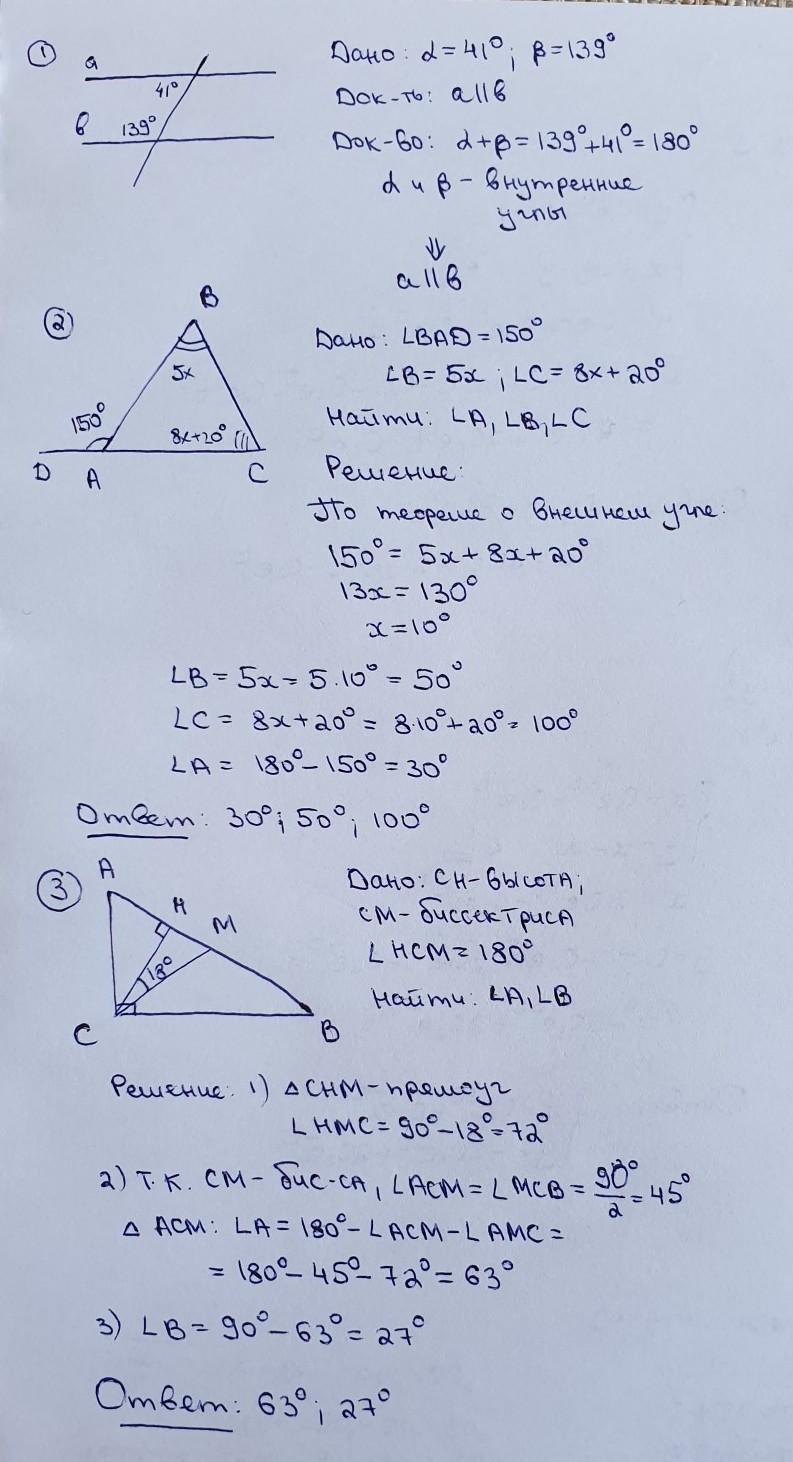 ① a
41°
b 139°
Дано: α=41°; β=139°
Док-ть: a||b
Док-во: α+β=139°+41°=180°
α и β - внутренние
углы
⇓
a||b
②
B
5x
150°
8x+20°
D A C
Дано: ∠BAD=150°
∠B=5x; ∠C=8x+20°
Найти: ∠A, ∠B, ∠C
Решение:
По теореме о внешнем угле:
150°=5x+8x+20°
13x=130°
x=10°
∠B=5x=5·10°=50°
∠C=8x+20°=8·10°+20°=100°
∠A=180°-150°=30°
Ответ: 30°; 50°; 100°
③
A
H
M
18°
C B
Дано: CH-высота;
CM-биссектриса
∠HCM=180°
Найти: ∠A, ∠B
Решение: 1) △CHM-прямоуг
∠HMC=90°-18°=72°
2) Т.К. CM-бис-са, ∠ACM=∠MCB=90°/2=45°
△ ACM: ∠A=180°-∠ACM-∠AMC=
=180°-45°-72°=63°
3) ∠B=90°-63°=27°
Ответ: 63°; 27°